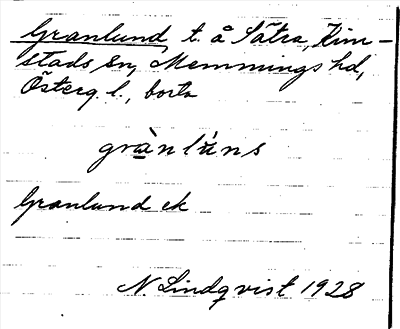 Granlund, t. å Sätra, Kim-
stads sn, Memmings hd,
Österg. l., borta
grànlúns
Granlund ek
N Lindqvist 1928